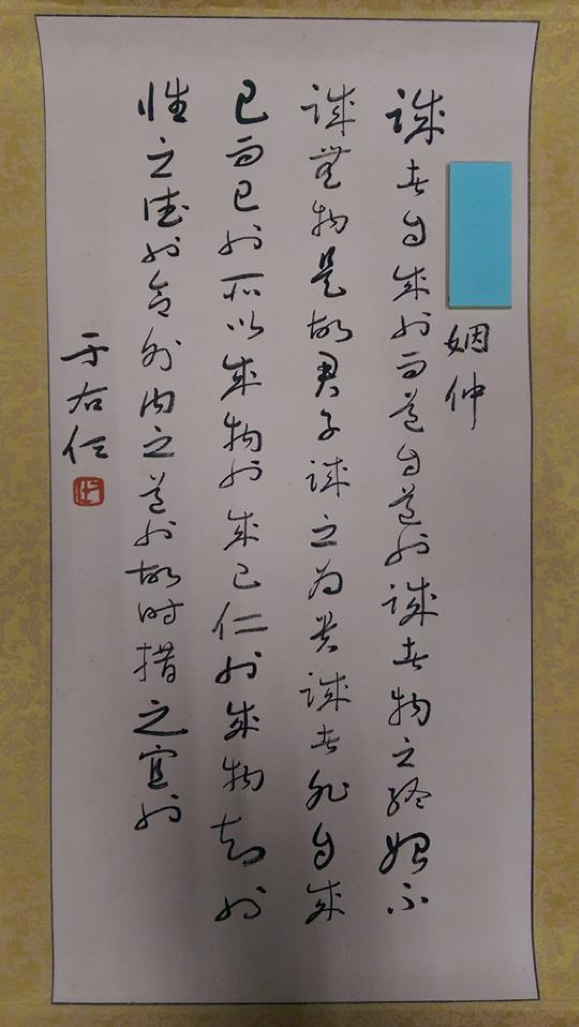 姻仲
誠者自成也而道自道也誠者物之終始不
誠無物是故君子誠之為貴誠者非自成
己而已也所以成物也成己仁也成物知也
性之德也合外內之道也故時措之宜也
于右任